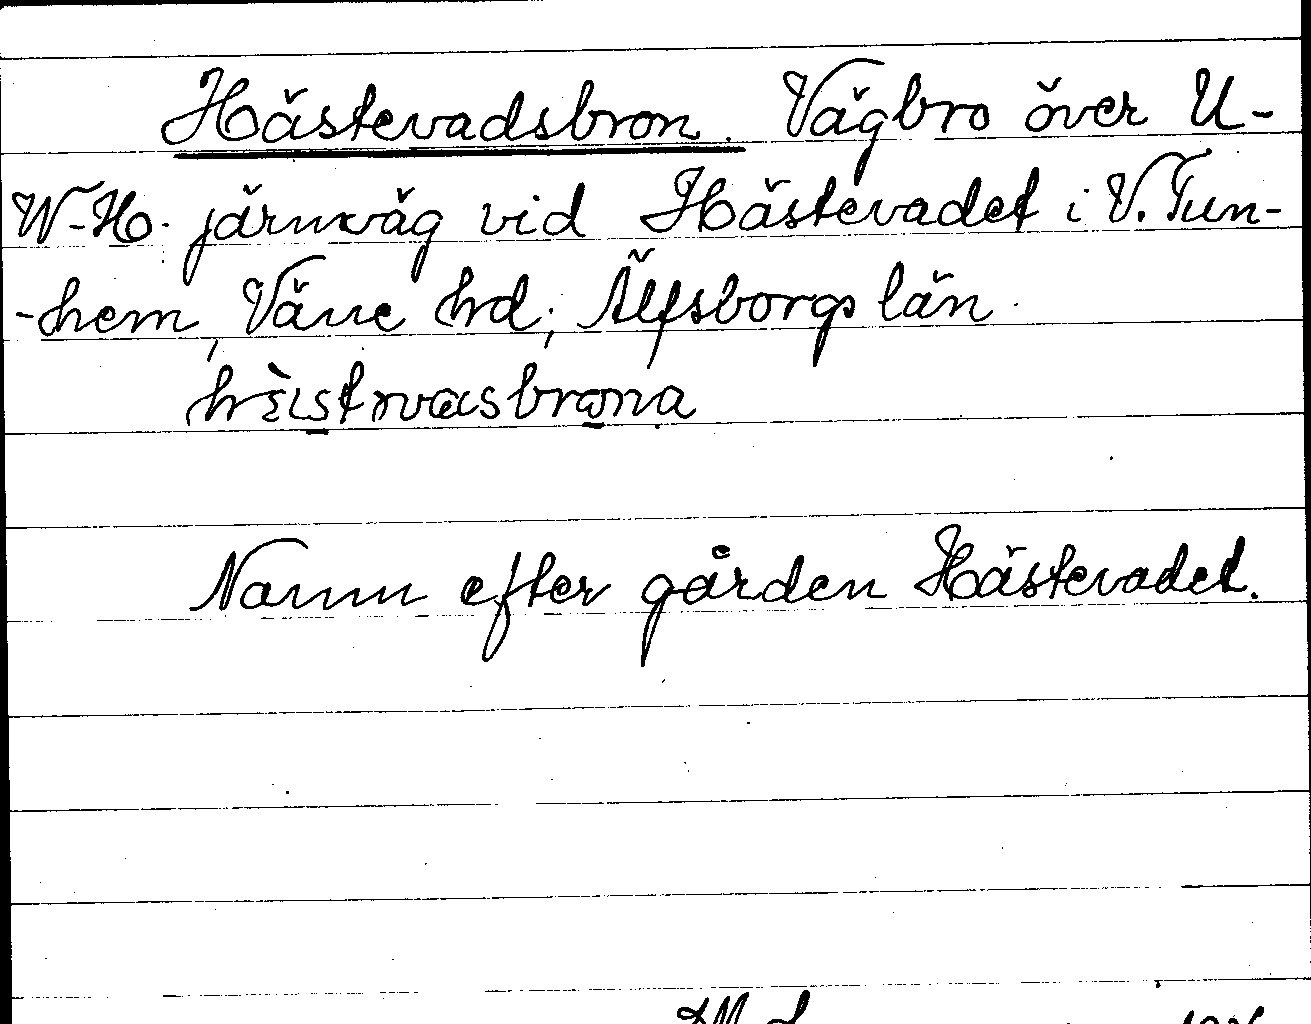 Hästevadsbron. Vägbro över U-
W-H. järnväg vid Hästevadet i V. Tun-
-hem, Väne hd; Älfsborgs län.
Namn efter gården Hästevadet.